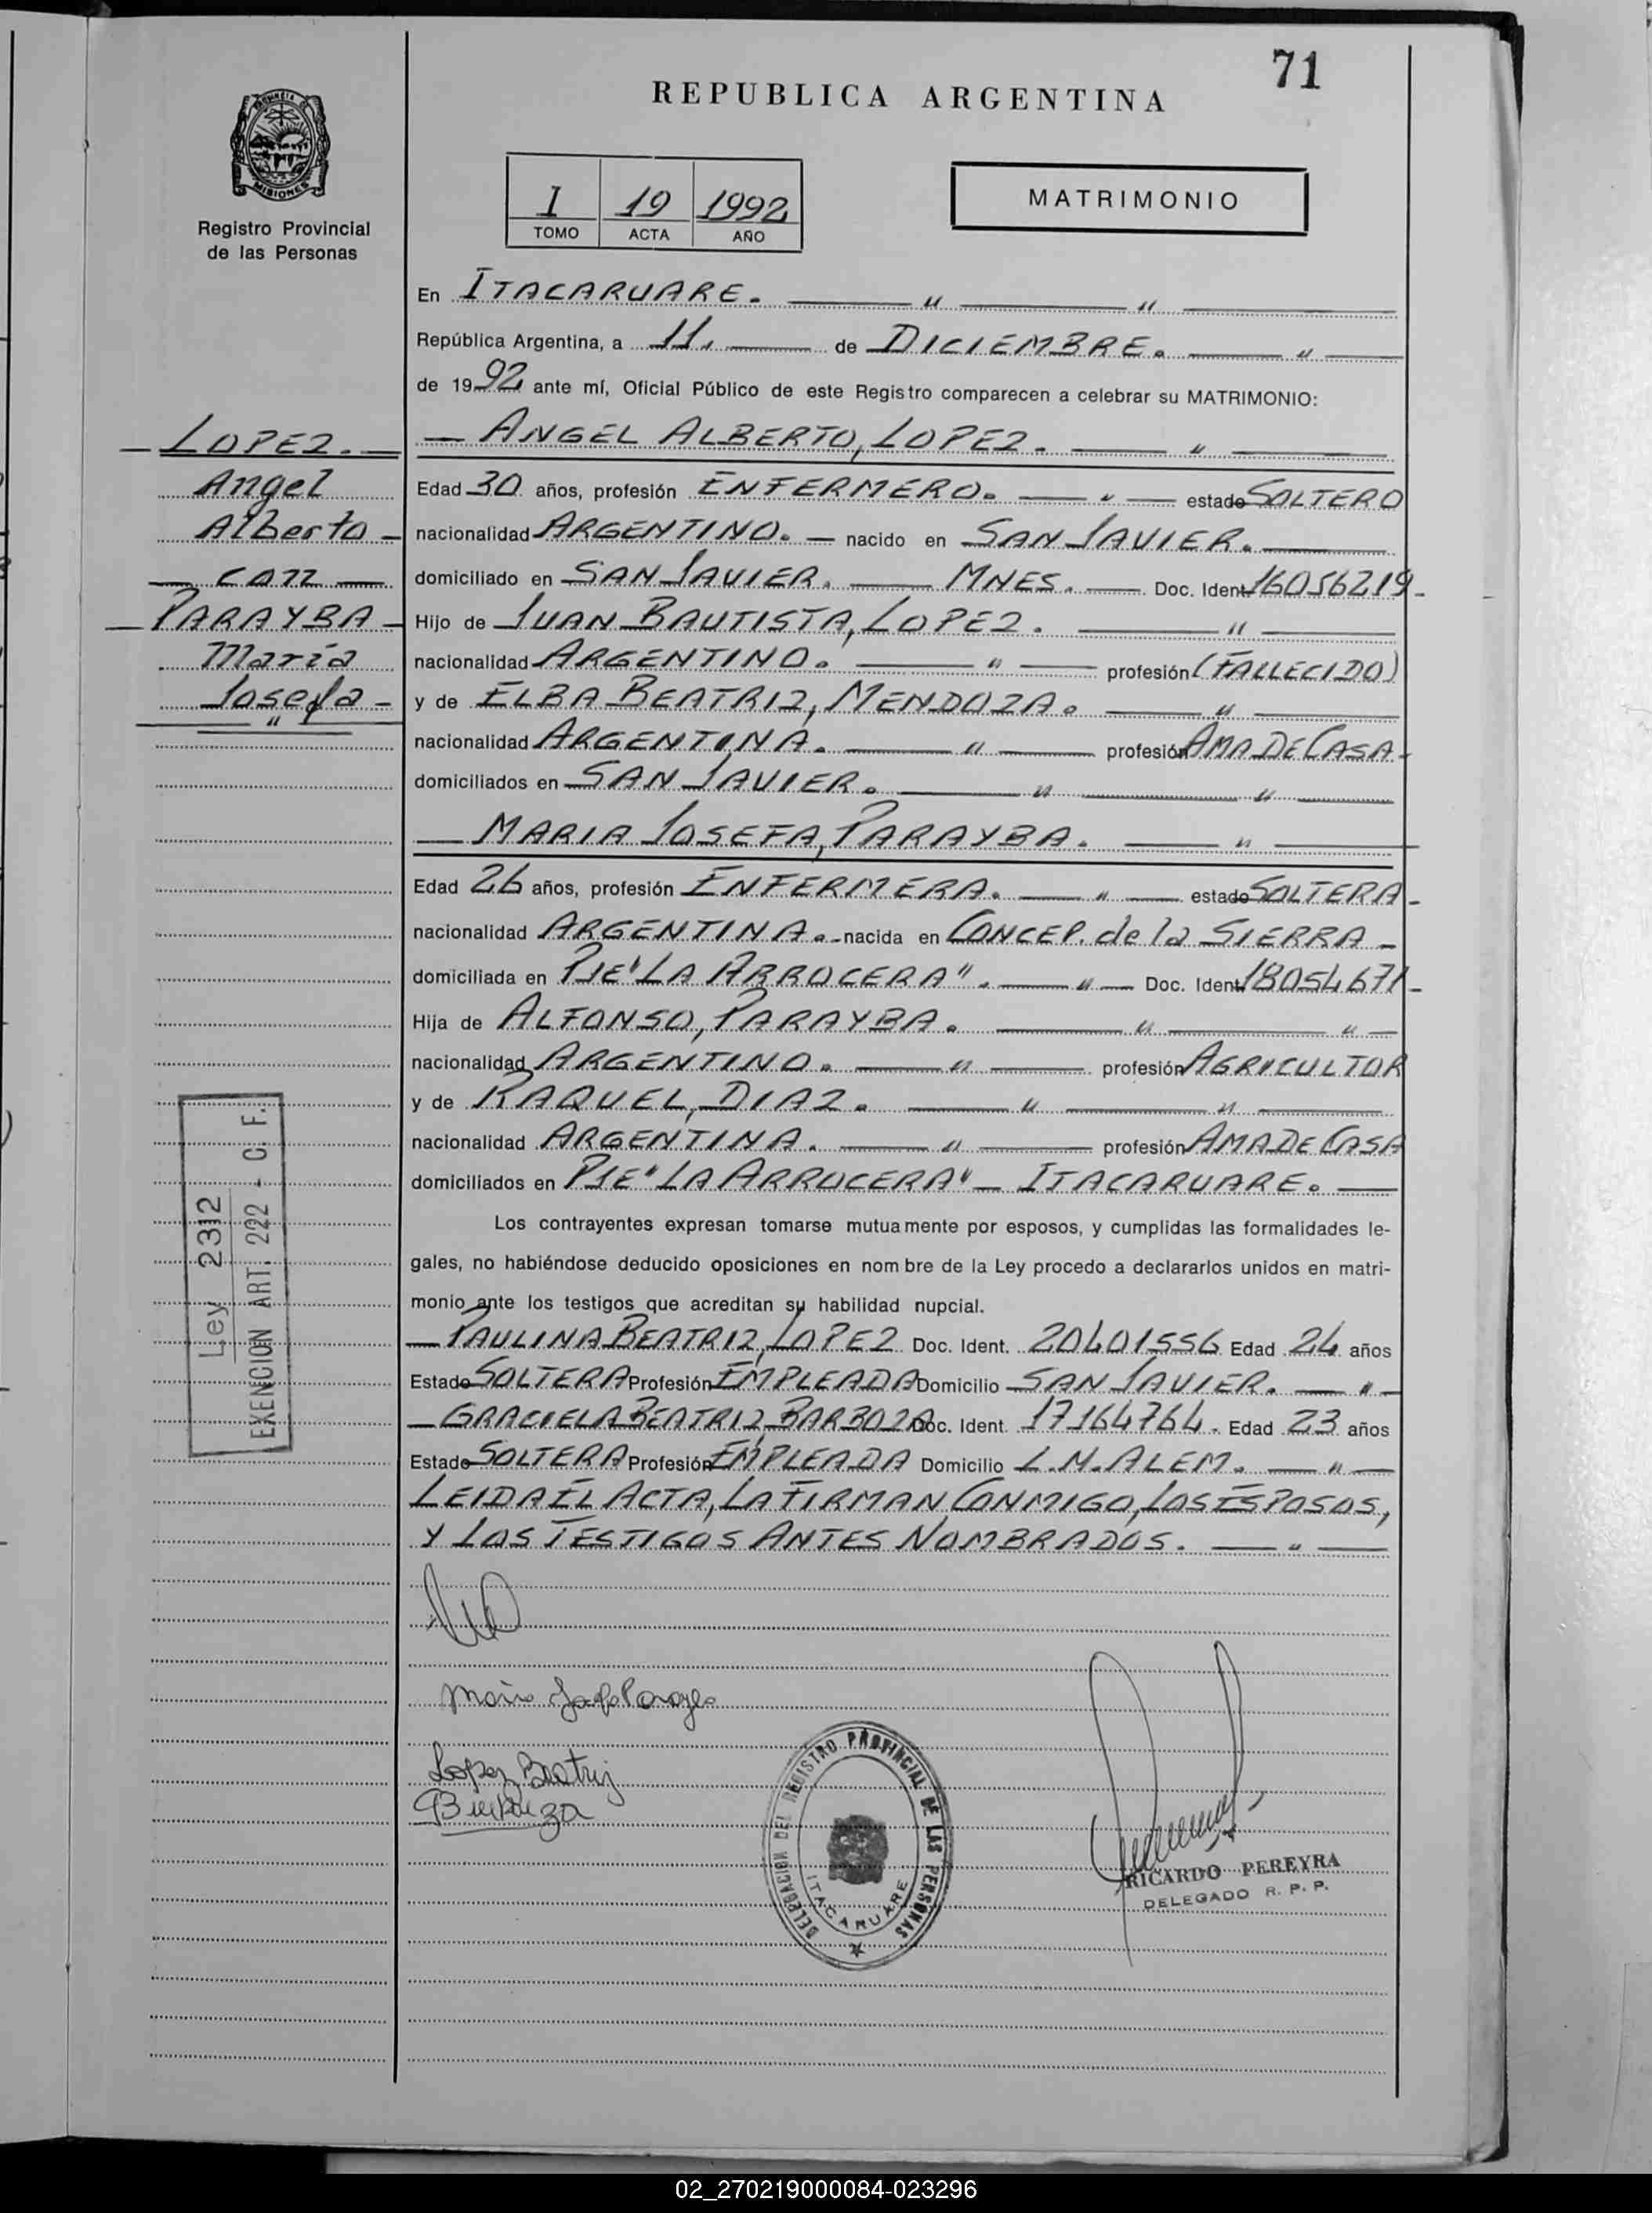 71
REPUBLICA ARGENTINA
PROVINCIA DE
MISIONES
Registro Provincial
de las Personas
I 19 1992
TOMO ACTA AÑO
MATRIMONIO
En ITACARUARE. " "
República Argentina, a 11. de DICIEMBRE. "
de 1992 ante mí, Oficial Público de este Registro comparecen a celebrar su MATRIMONIO:
LOPEZ.
Angel
Alberto
con
PARAYBA
Maria
Josefa
"
ANGEL ALBERTO, LOPEZ. "
Edad 30 años, profesión ENFERMERO. " estado SOLTERO
nacionalidad ARGENTINO. nacido en SAN JAVIER.
domiciliado en SAN JAVIER. MNES. Doc. Ident. 16056219
Hijo de JUAN BAUTISTA, LOPEZ. "
nacionalidad ARGENTINO. " profesión (FALLECIDO)
y de ELBA BEATRIZ, MENDOZA. "
nacionalidad ARGENTINA. " profesión AMA DE CASA
domiciliados en SAN JAVIER. " "
MARIA JOSEFA, PARAYBA. "
Edad 26 años, profesión ENFERMERA. " estado SOLTERA
nacionalidad ARGENTINA. nacida en CONCEP. de la SIERRA
domiciliada en PJE "LA ARROCERA". " Doc. Ident. 18054671
Hija de ALFONSO, PARAYBA. " "
nacionalidad ARGENTINO. " profesión AGRICULTOR
y de RAQUEL, DIAZ. " "
nacionalidad ARGENTINA. " profesión AMA DE CASA
domiciliados en PJE "LA ARROCERA" - ITACARUARE.
Los contrayentes expresan tomarse mutuamente por esposos, y cumplidas las formalidades le-
gales, no habiéndose deducido oposiciones en nombre de la Ley procedo a declararlos unidos en matri-
monio ante los testigos que acreditan su habilidad nupcial.
PAULINA BEATRIZ, LOPEZ Doc. Ident. 20401556 Edad 24 años
Estado SOLTERA Profesión EMPLEADA Domicilio SAN JAVIER. "
GRACIELA BEATRIZ, BARBOZA Doc. Ident. 17164764. Edad 23 años
Estado SOLTERA Profesión EMPLEADA Domicilio L.N. ALEM. "
LEIDA EL ACTA, LA FIRMAN CONMIGO, LOS ESPOSOS,
Y LOS TESTIGOS ANTES NOMBRADOS. "
Ley 2312
EXENCION ART. 222 - C. F.
Lopez Beatriz
DELEGACION DEL REGISTRO PROVINCIAL DE LAS PERSONAS
ITACARUARE
RICARDO PEREYRA
DELEGADO R. P. P.
02_270219000084-023296